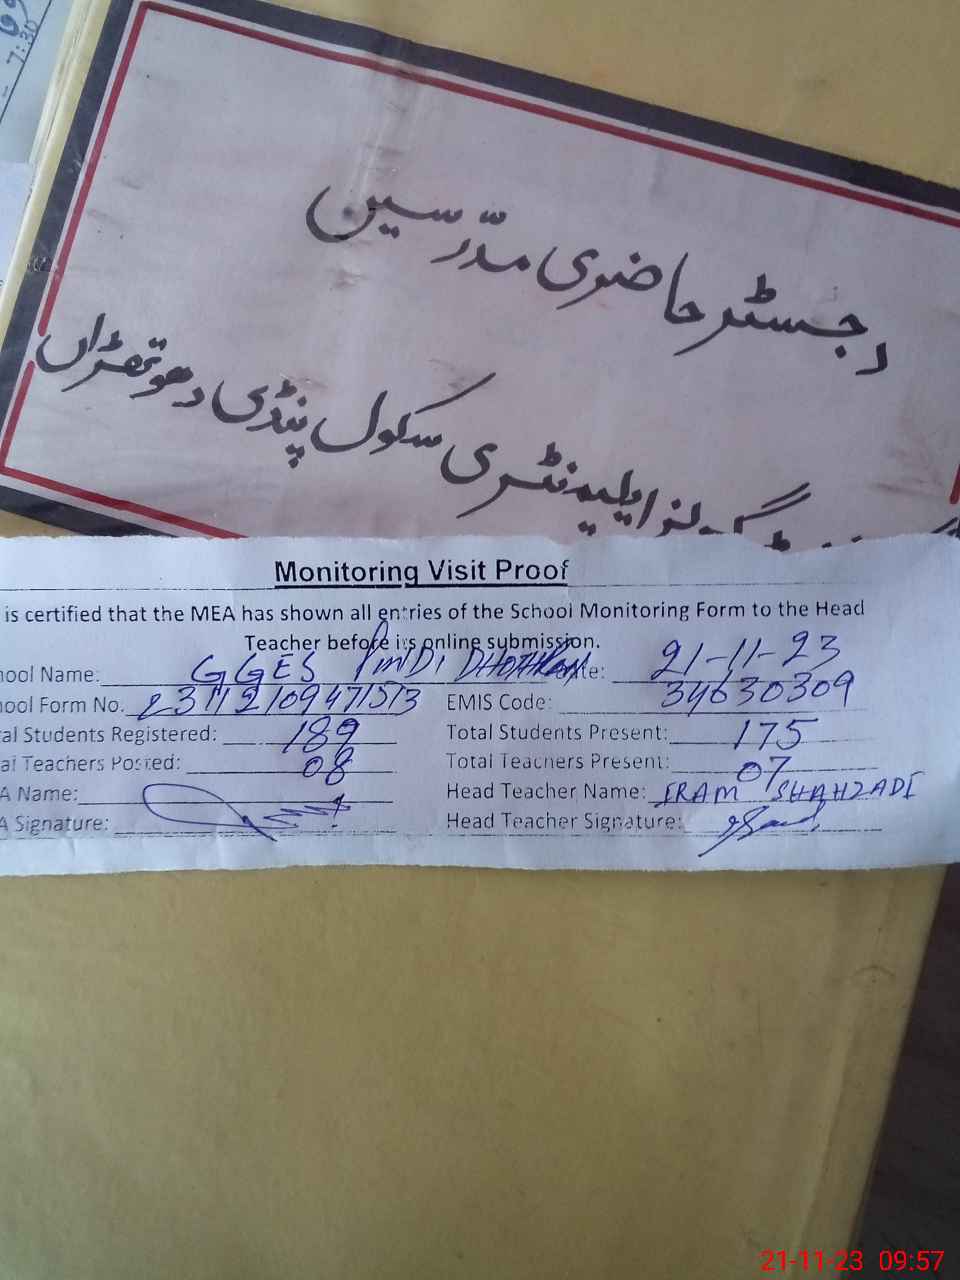 7:30
رجسٹر حاضری مدّرسین
گرلز ایلیمنٹری سکول پنڈی دھوتھڑاں
Monitoring Visit Proof
is certified that the MEA has shown all entries of the School Monitoring Form to the Head
Teacher before its online submission.
hool Name: GGES PINDI DHOTHRAN ate: 21-11-23
hool Form No. EMIS Code: 34630309
al Students Registered: 189 Total Students Present: 175
al Teachers Posted: 08 Total Teachers Present: 07
A Name: Head Teacher Name: IRAM SHAHZADI
A Signature: Head Teacher Signature:
21-11-23 09:57